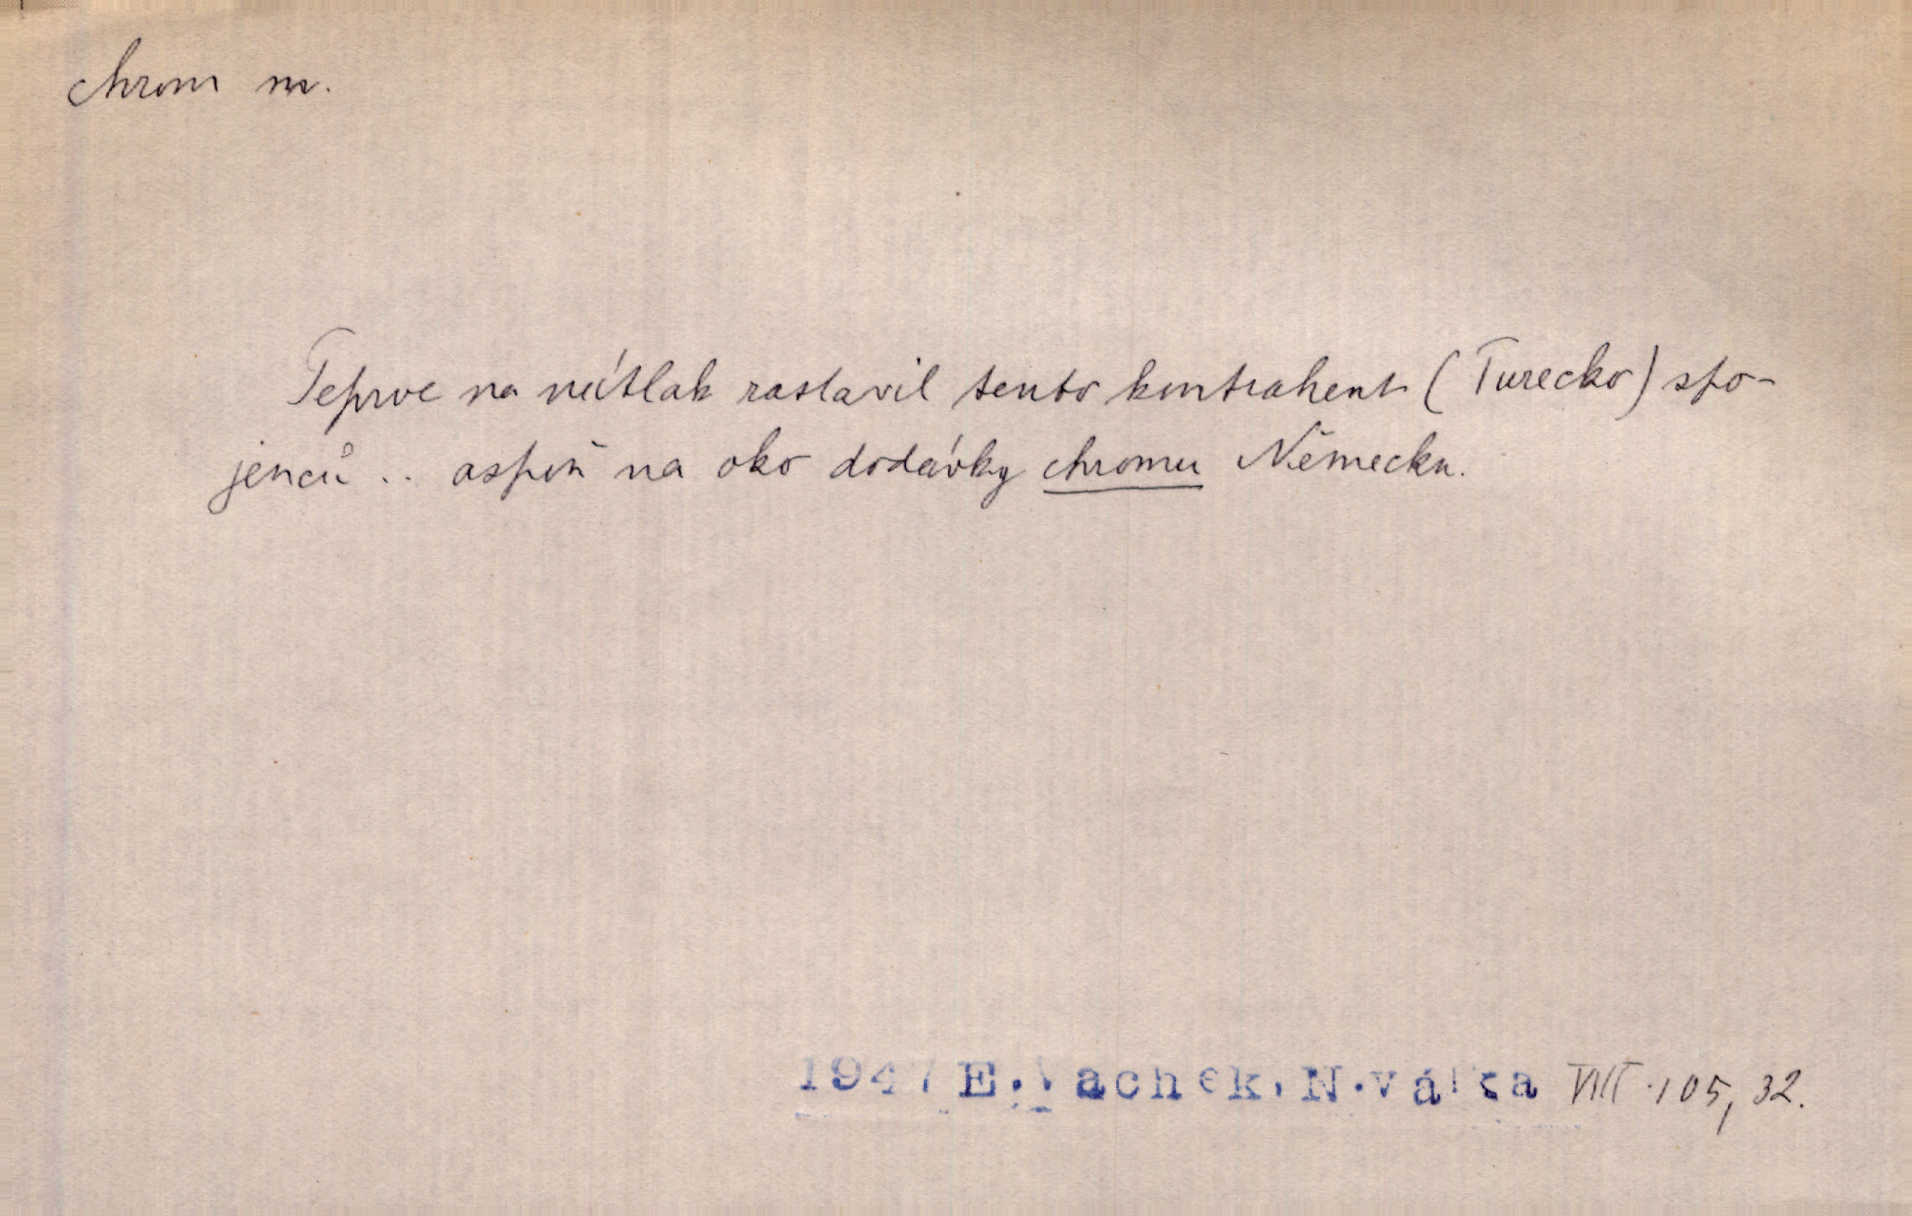 chrom m.
Teprve na nátlak zastavil tento kontrahent (Turecko) spo-
jenců .. aspoň na oko dodávky chromu Německu.
1947 E.Vachek, N.válka VIII.105, 32.